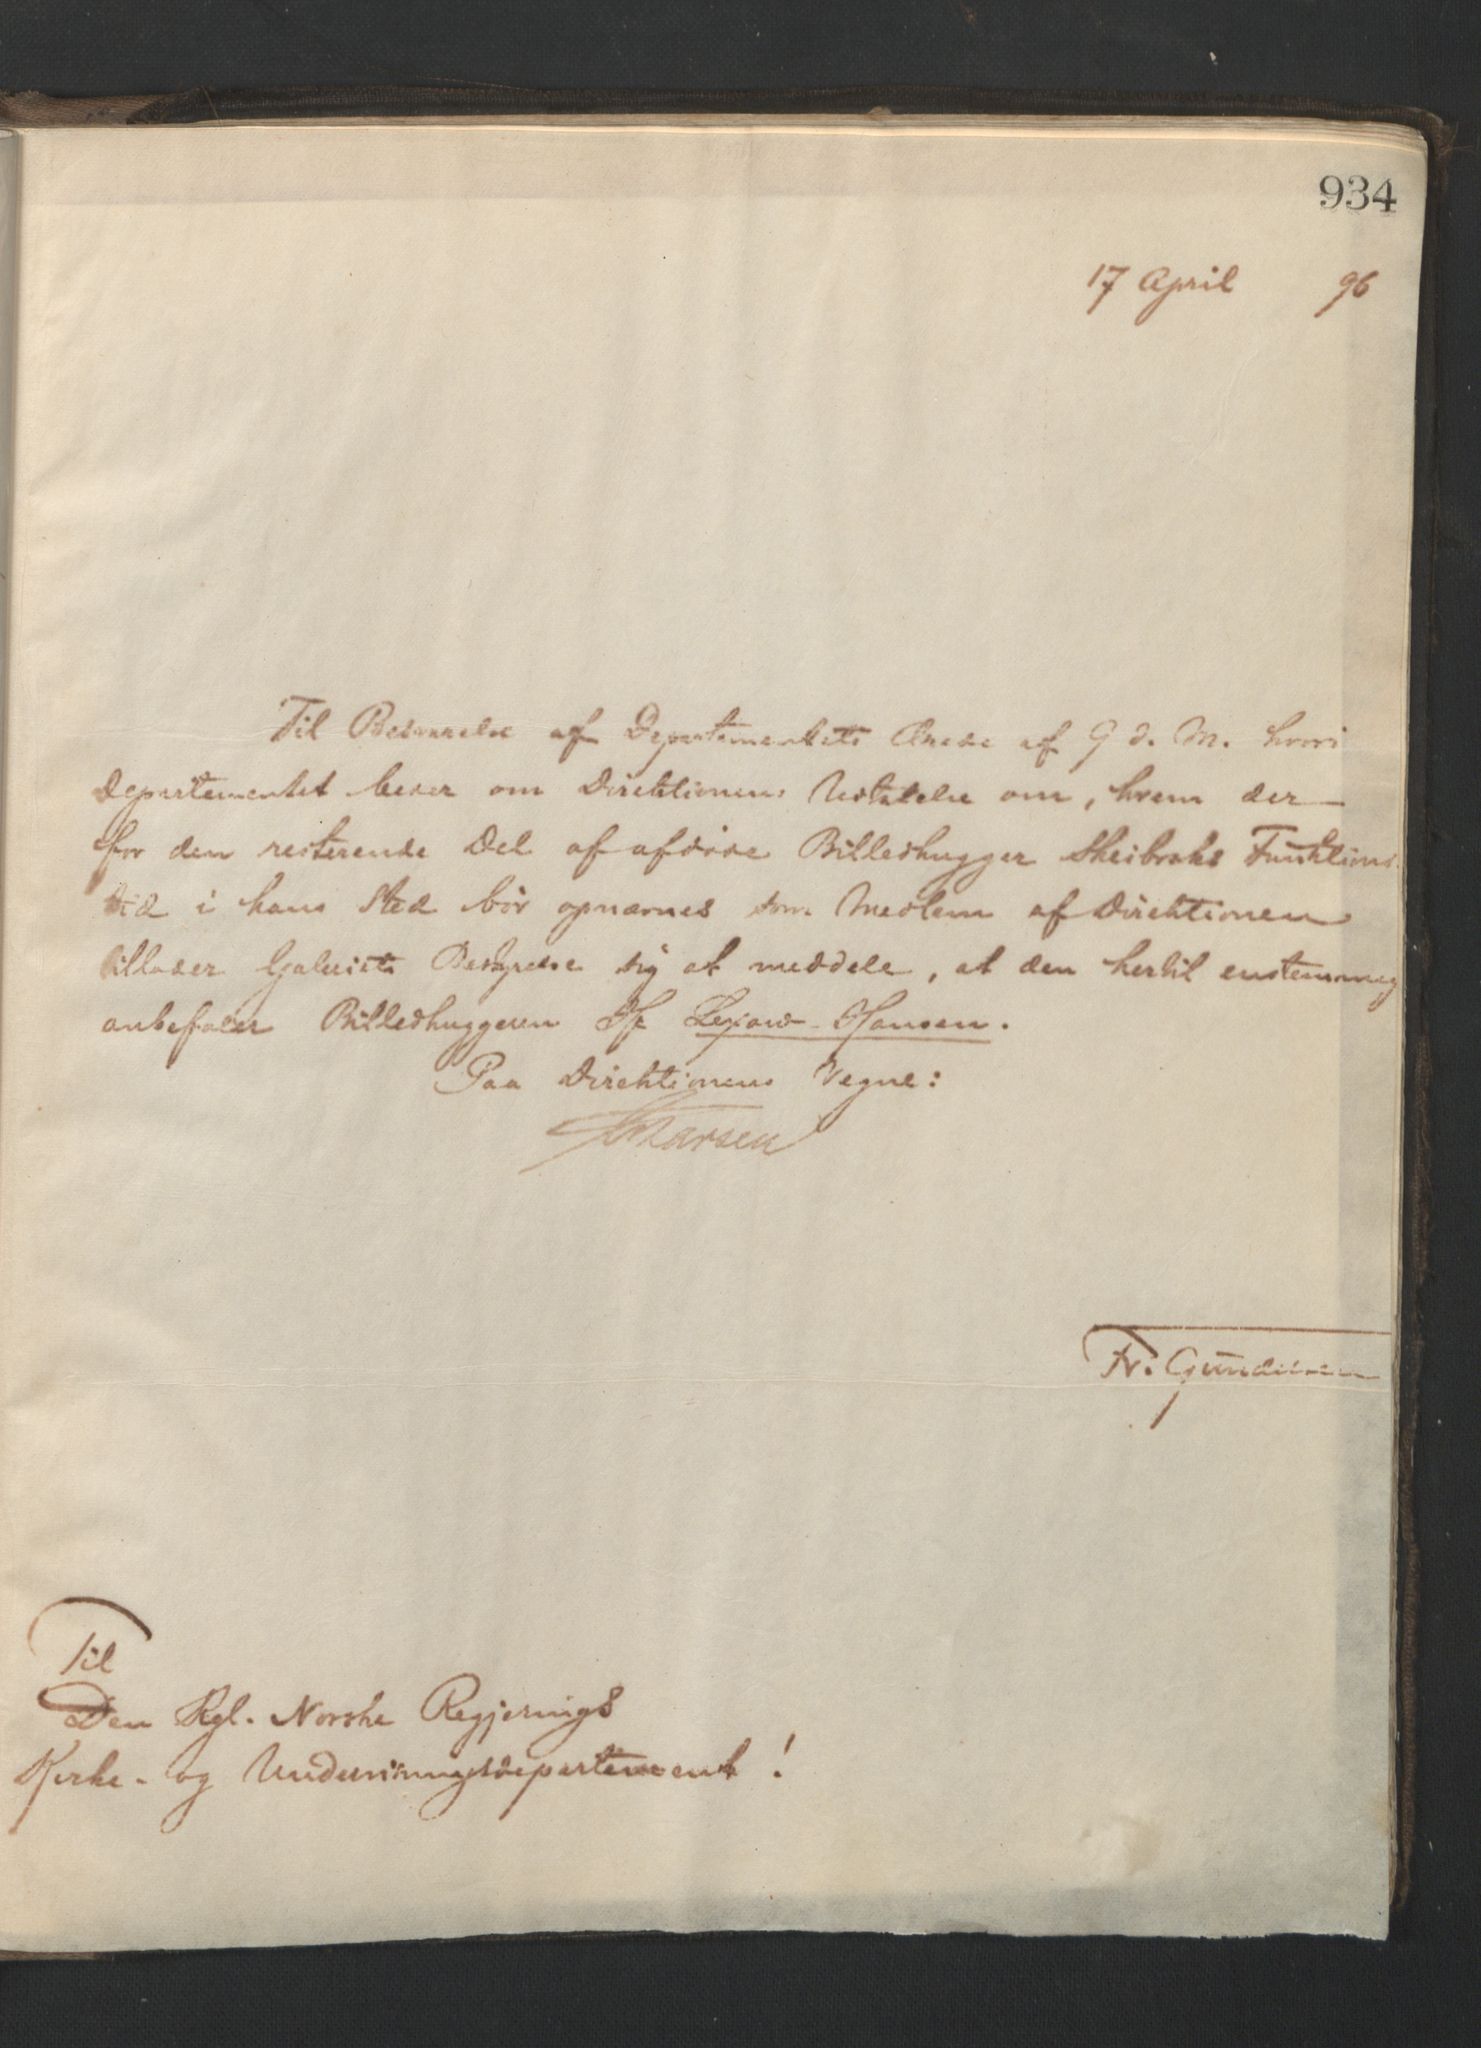 934
17 April 96
Til Besvarelse af Departementets Ærede af 9 d. M. hvori
Departementet beder om Direktionens Udtalelse om, hvem der
for den resterende Del af afdøde Billedhugger Skeibroks Funktions
tid i hans Sted bör opnævnes som Medlem af Direktionen
tillader Galleriets Bestyrelse sig at meddele, at den hertil enstemmig
anbefaler Billedhuggeren Hr Lexow-Hansen.
Paa Direktionens Vegne:
Fr. Gundersen
Til
Den Kgl. Norske Regjerings
Kirke- og Undervisningsdepartement!